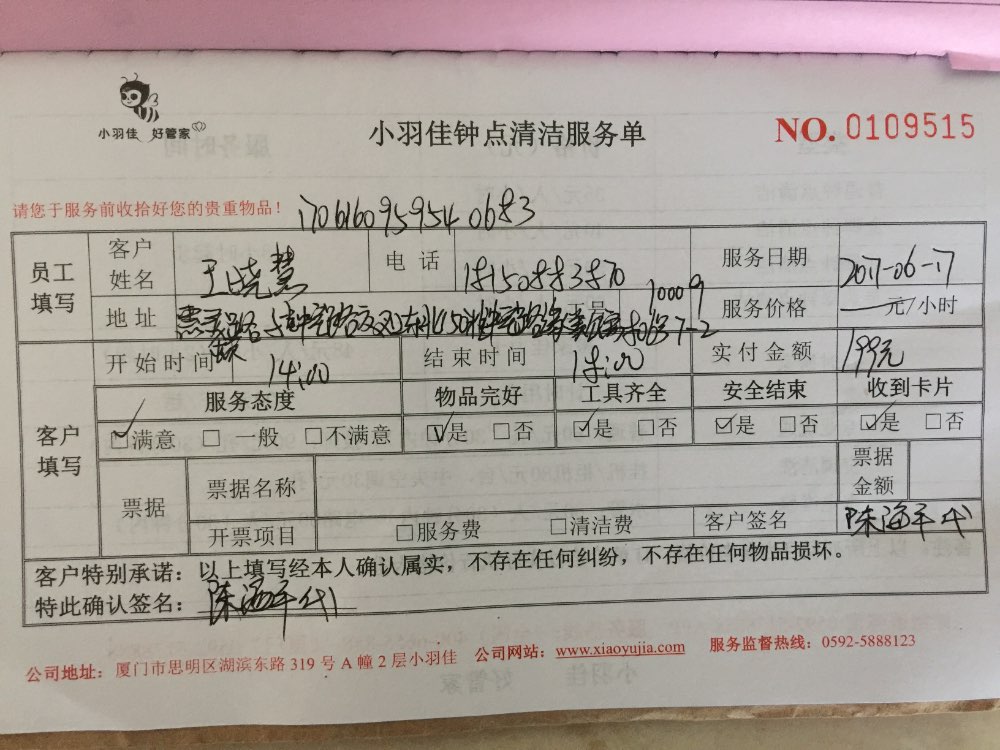 小羽佳 好管家
小羽佳钟点清洁服务单
NO. 0109515
请您于服务前收拾好您的贵重物品!
170616095954 0683
员工填写 客户姓名 王晓慧 电话 18150883870 服务日期 2017-06-17
地址 7-2 10009 服务价格 元/小时
客户填写 开始时间 14:00 结束时间 18:00 实付金额 199元
服务态度 物品完好 工具齐全 安全结束 收到卡片
☑满意 □一般 □不满意 ☑是 □否 ☑是 □否 ☑是 □否 ☑是 □否
票据 票据名称 票据金额
开票项目 □服务费 □清洁费 客户签名 陈海平代
客户特别承诺:以上填写经本人确认属实,不存在任何纠纷,不存在任何物品损坏。
特此确认签名:陈海平代
公司地址:厦门市思明区湖滨东路319号A幢2层小羽佳 公司网站:www.xiaoyujia.com 服务监督热线:0592-5888123